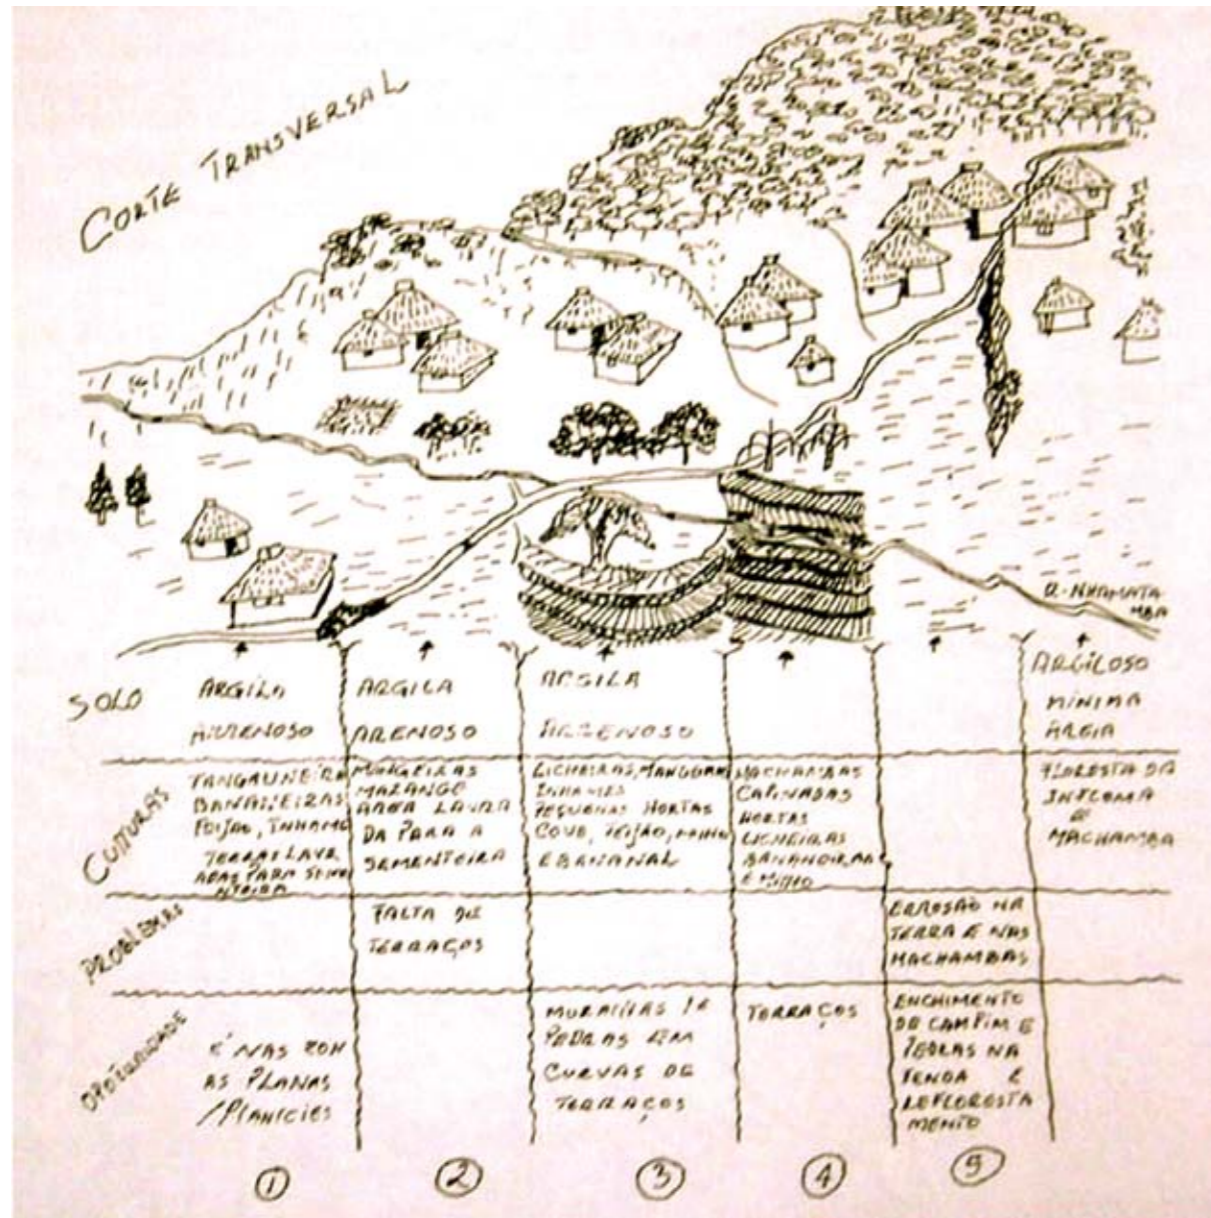 CORTE TRANSVERSAL
R. NHAMATA
MBA
SOLO
ARGILA
ARENOSO
ARGILA
ARENOSO
ARGILA
ARGILOSO
MÍNIMA
AREIA
CULTURAS
BANANEIRAS
FEIJÃO, INHAME
TERRAS LAVR
ADAS PARA SEME
NTEIRA
MANGEIRAS
AREA LAVRA
DA PARA A
SEMENTEIRA
LICHEIRAS,
INHAMES
PEQUENAS HORTAS
COVE, FEIJÃO, MILHO
E BANANAL
MACHAMBAS
CAPINADAS
HORTAS
LICHEIRAS
BANANEIRAS
E MILHO
FLORESTA DA
E
MACHAMBA
PROBLEMAS
FALTA DE
TERRAÇOS
ERROSÃO NA
TERRA E NAS
MACHAMBAS
OPOTUNIDADE
E' NAS ZON
AS PLANAS
/PLANICIES
PEDRAS EM
CURVAS DE
TERRAÇOS
TERRAÇOS
ENCHIMENTO
DE CAMPIM E
PEDRAS NA
FENDA E
REFLORESTA
MENTO
1
2
3
4
5